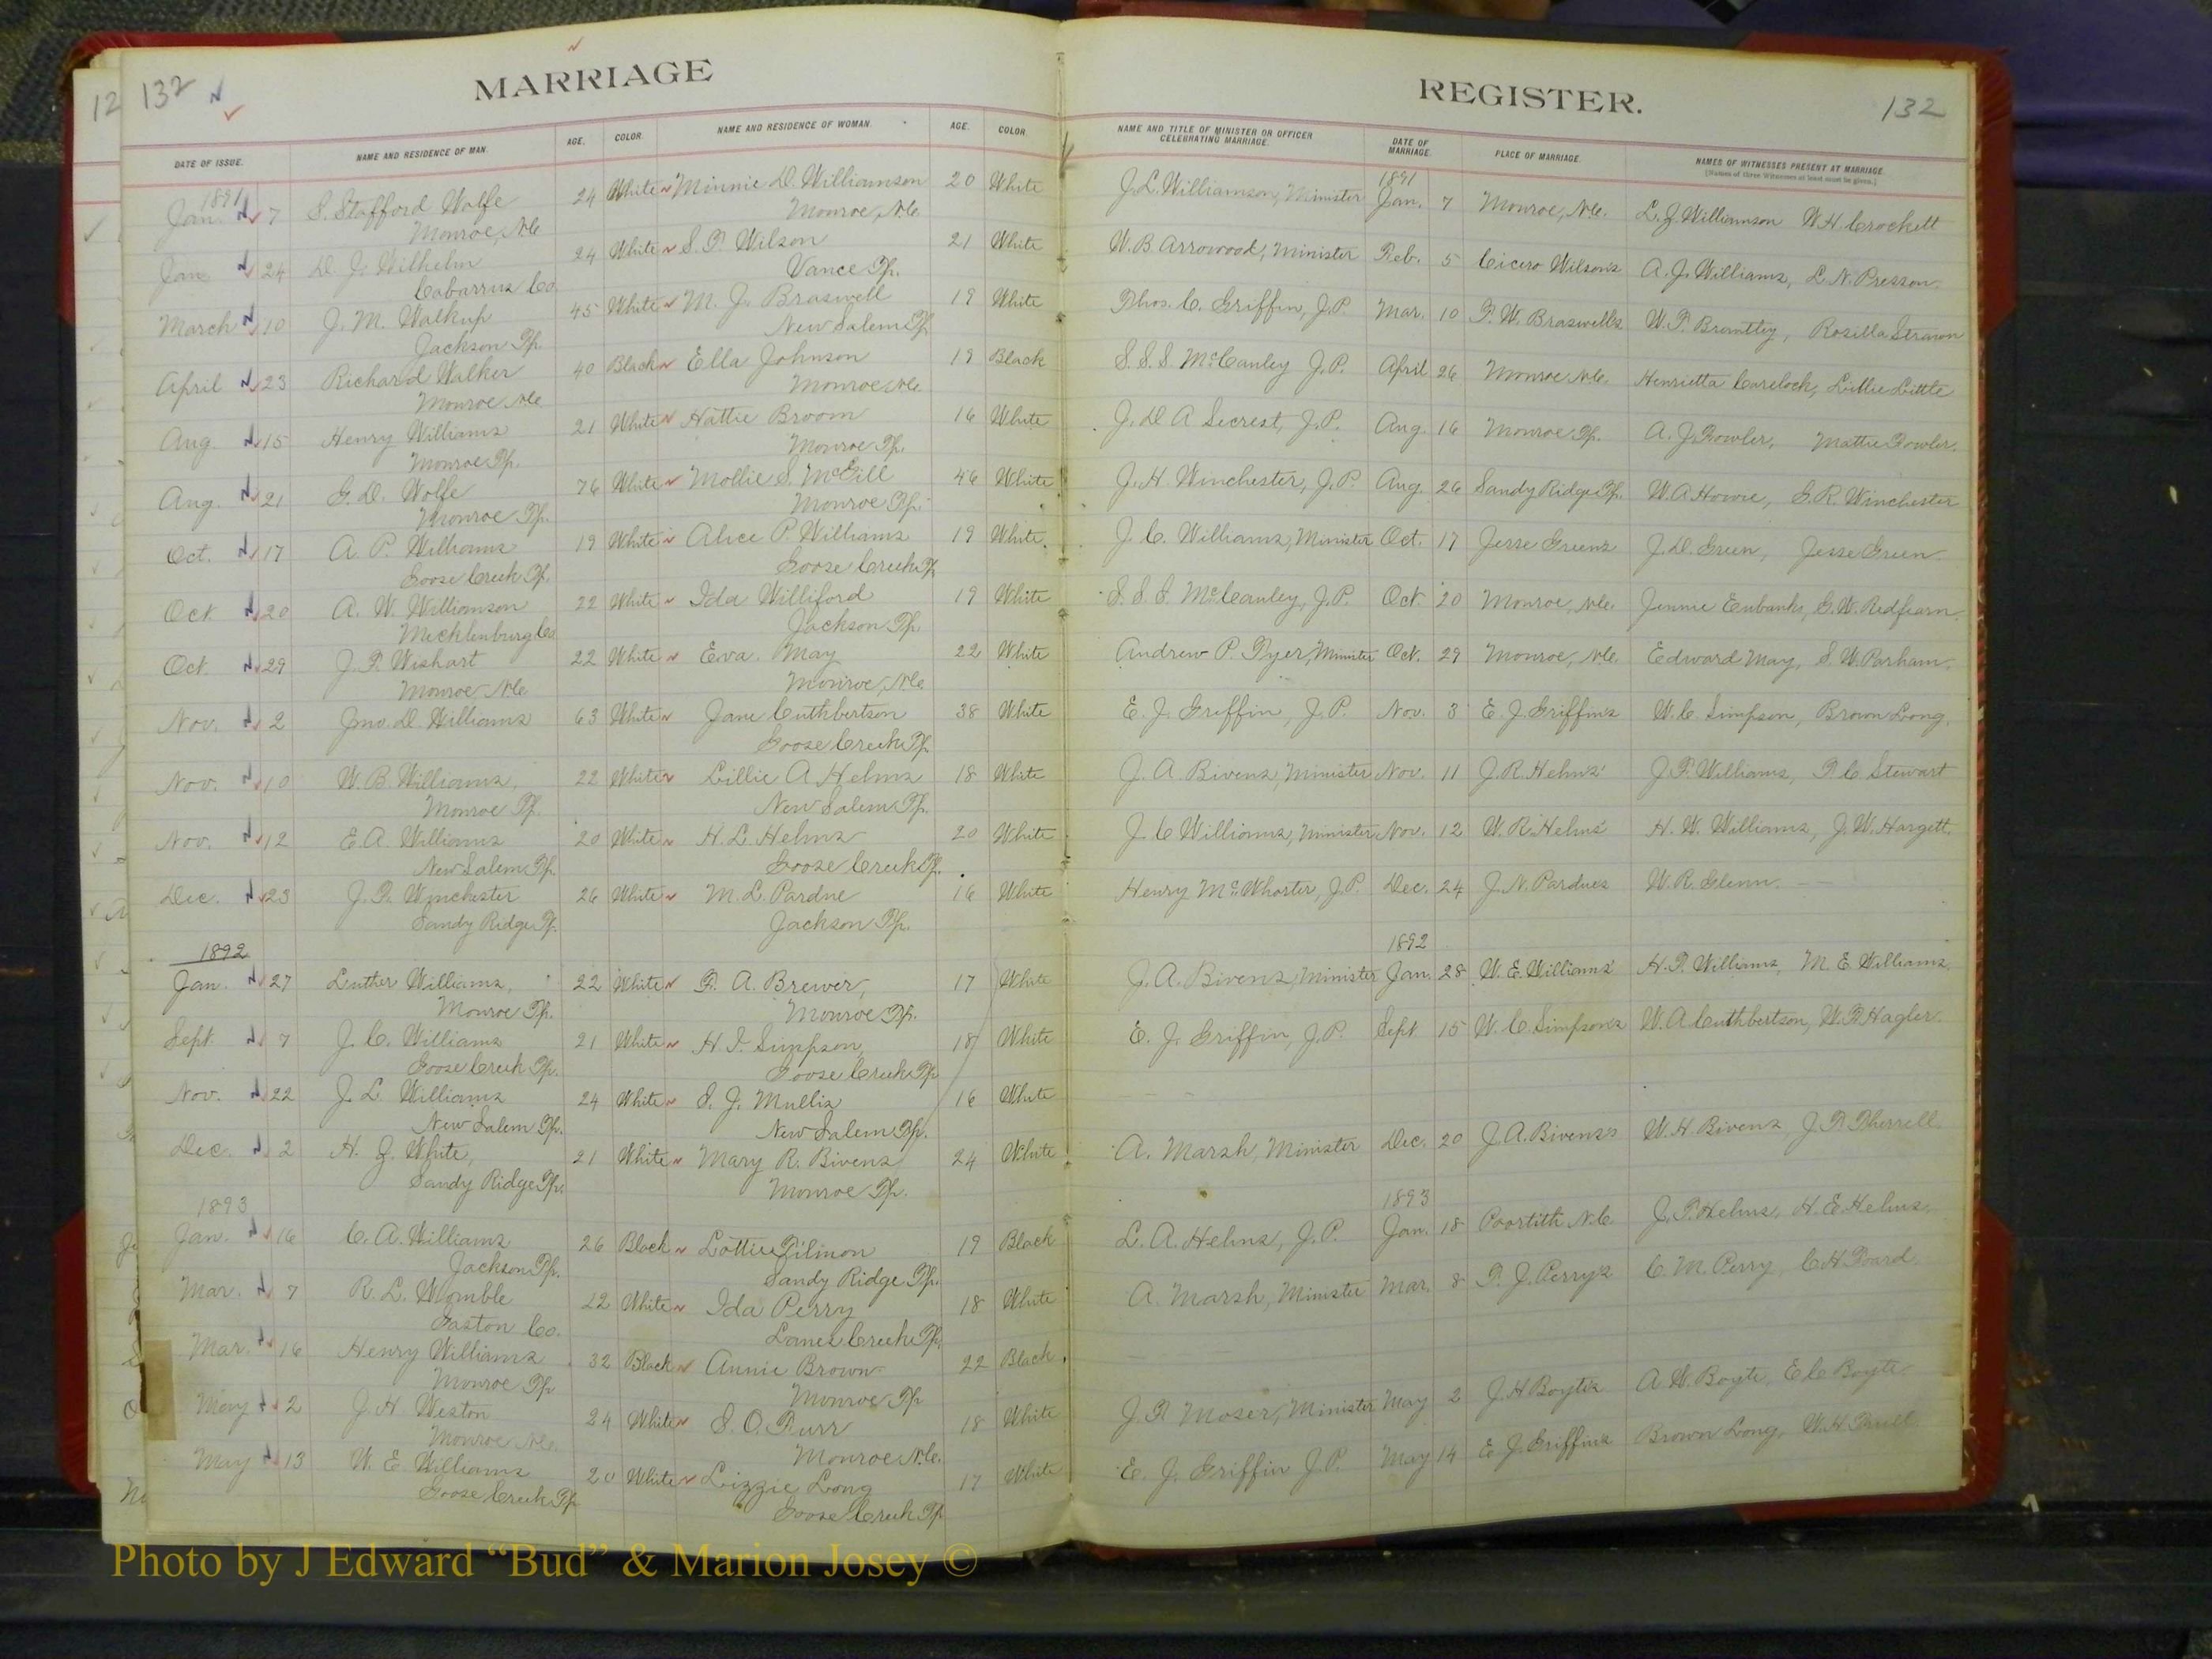 12 132 MARRIAGE REGISTER. 132
DATE OF ISSUE. NAME AND RESIDENCE OF MAN. AGE. COLOR NAME AND RESIDENCE OF WOMAN. AGE. COLOR NAME AND TITLE OF MINISTER OR OFFICER CELEBRATING MARRIAGE. DATE OF MARRIAGE. PLACE OF MARRIAGE. NAMES OF WITNESSES PRESENT AT MARRIAGE.
[Names of three Witnesses at least must be given.]
1891 1891
Jan. 7 S. Stafford Wolfe 24 White Minnie D. Williamson 20 White J. L. Williamson, Minister Jan. 7 Monroe, N.C. L. J. Williamson W. H. Crockett
Monroe, N.C. Monroe, N.C.
Jan 24 D. J. Wilhelm 24 White S. F. Wilson 21 White W. B. Arrowood, Minister Feb. 5 Cicero Wilsons A. J. Williams, L. N. Presson.
Cabarrus Co. Vance Tp.
March 10 J. M. Walkup 45 White M. J. Braswell 19 White Thos. C. Griffin, J.P. Mar. 10 P. W. Braswells W. T. Brantley, Rosilla Strawn
Jackson Tp. New Salem Tp.
April 23 Richard Walker 40 Black Ella Johnson 19 Black S. S. S. McCauley J.P. April 26 Monroe N.C. Henrietta Carelock, Lillie Little
Monroe N.C. Monroe N.C.
Aug. 15 Henry Williams 21 White Hattie Broom 16 White J. D. A Secrest, J.P. Aug. 16 Monroe Tp. A. J. Fowler, Mattie Fowler.
Monroe Tp. Monroe Tp.
Aug. 21 G. D. Wolfe 76 White Mollie S. McGill 46 White J. H. Winchester, J.P. Aug. 26 Sandy Ridge Tp. W. A Howie, G. R. Winchester
Monroe Tp. Monroe Tp.
Oct. 17 A. P. Williams 19 White Alice P. Williams 19 White J. C. Williams, Minister Oct. 17 Jesse Greens J. D. Green, Jesse Green.
Goose Creek Tp. Goose Creek Tp
Oct. 20 A. W. Williamson 22 White Ida Williford 19 White S. S. S. McCauley, J.P. Oct. 20 Monroe, N.C. Jennie Eubanks, G. W. Redfearn.
Mecklenburg Co. Jackson Tp.
Oct 29 J. T. Wishart 22 White Eva. May 22 White Andrew P. Tyer, Minister Oct. 29 Monroe, N.C. Edward May, S. W. Parham.
Monroe N.C. Monroe, N.C.
Nov. 2 Jno. D. Williams 63 White Jane Cuthbertson 38 White E. J. Griffin, J.P. Nov. 3 E. J. Griffins W. C. Simpson, Brown Long.
Goose Creek Tp.
Nov. 10 W. B. Williams, 22 White Lillie A Helms 18 White J. A. Bivens, Minister Nov. 11 J. R. Helms' J. T. Williams, T. C. Stewart
Monroe Tp. New Salem Tp.
Nov. 12 E. A. Williams 20 White H. L. Helms 20 White J. C Williams, Minister Nov. 12 W. R. Helms' H. W. Williams, J. W. Hargett.
New Salem Tp. Goose Creek Tp.
Dec. 23 J. F. Winchester 26 White M. L. Pardue 16 White Henry McWhorter, J.P. Dec. 24 J. N. Pardues W. R. Glenn.
Sandy Ridge Tp. Jackson Tp.
1892 1892
Jan. 27 Luther Williams, 22 White F. A. Brewer, 17 White J. A. Bivens, Minister Jan. 28 W. E. Williams' H. T. Williams, M. E. Williams.
Monroe Tp. Monroe Tp.
Sept. 7 J. C. Williams 21 White H. I. Simpson, 18 White E. J. Griffin, J.P. Sept. 15 W. C. Simpsons W. A Cuthbertson, W. F. Hagler.
Goose Creek Tp. Goose Creek Tp
Nov. 22 J. L. Williams 24 White S. J. Mullis 16 White
New Salem Tp. New Salem Tp.
Dec. 2 H. J. White, 21 White Mary R. Bivens 24 White A. Marsh, Minister Dec. 20 J. A. Bivens's W. H Bivens, J. F. Therrell.
Sandy Ridge Tp. Monroe Tp.
1893 1893
Jan. 16 C. A. Williams 26 Black Lottie 19 Black L. A. Helms, J.P. Jan. 18 Poortith N.C. J. P. Helms, H. E. Helms.
Jackson Tp. Sandy Ridge Tp.
Mar. 7 R. L. Womble 22 White Ida Perry 18 White A. Marsh, Minister Mar. 8 T. J. Perrys C. M. Perry, C. H. Foard.
Gaston Co. Lanes Creek Tp.
Mar. 16 Henry Williams 32 Black Annie Brown 22 Black
Monroe Tp Monroe Tp
May 2 J. H Weston 24 White S. O. Furr 18 White J. F. Moser, Minister May 2 J. H Boytes A. W. Boyte, E C Boyte
Monroe N.C. Monroe N.C.
May 13 W. E. Williams 20 White Lizzie Long 17 White E. J. Griffin J.P. May 14 E. J. Griffins Brown Long, W. H.
Goose Creek Tp Goose Creek Tp
Photo by J Edward “Bud” & Marion Josey ©